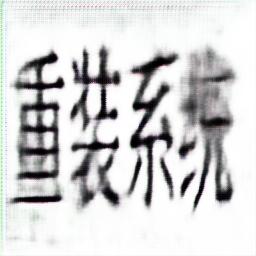 重装系统